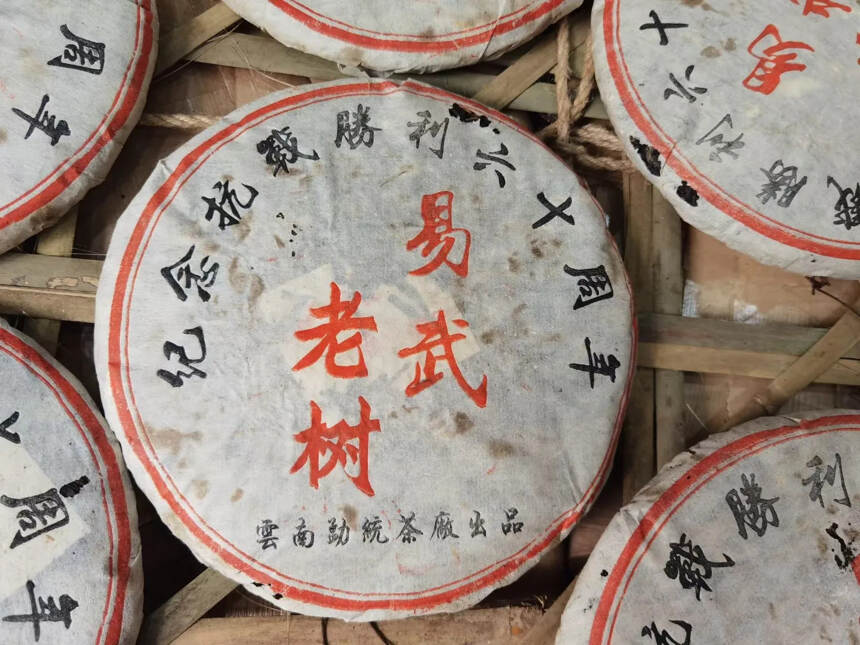 周年
纪念抗戰勝利六十周年
易武
老树
雲南勐統茶廠出品
勝利六十
易
周年
戰勝利